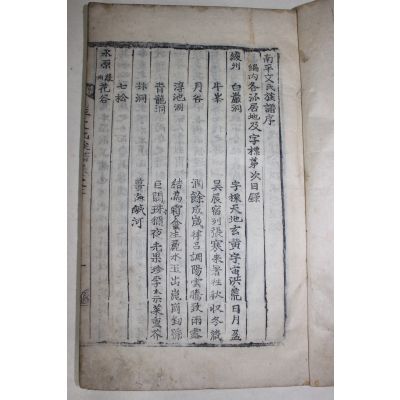 南平文氏族譜序
編內各派居地及字標茅次目錄
綾州 白巖洞 字標天地玄黃宇宙洪荒日月盈
牛峯 昃辰宿列張寒來暑往秋收冬藏
月谷 閏餘成歲律呂調陽雲騰致雨露
淳池洞 結爲霜金生麗水玉出崑崗釰號
青龍洞 巨闕珠稱夜光果珍李柰菜重芥
林洞 薑海鹹河
七松
花谷